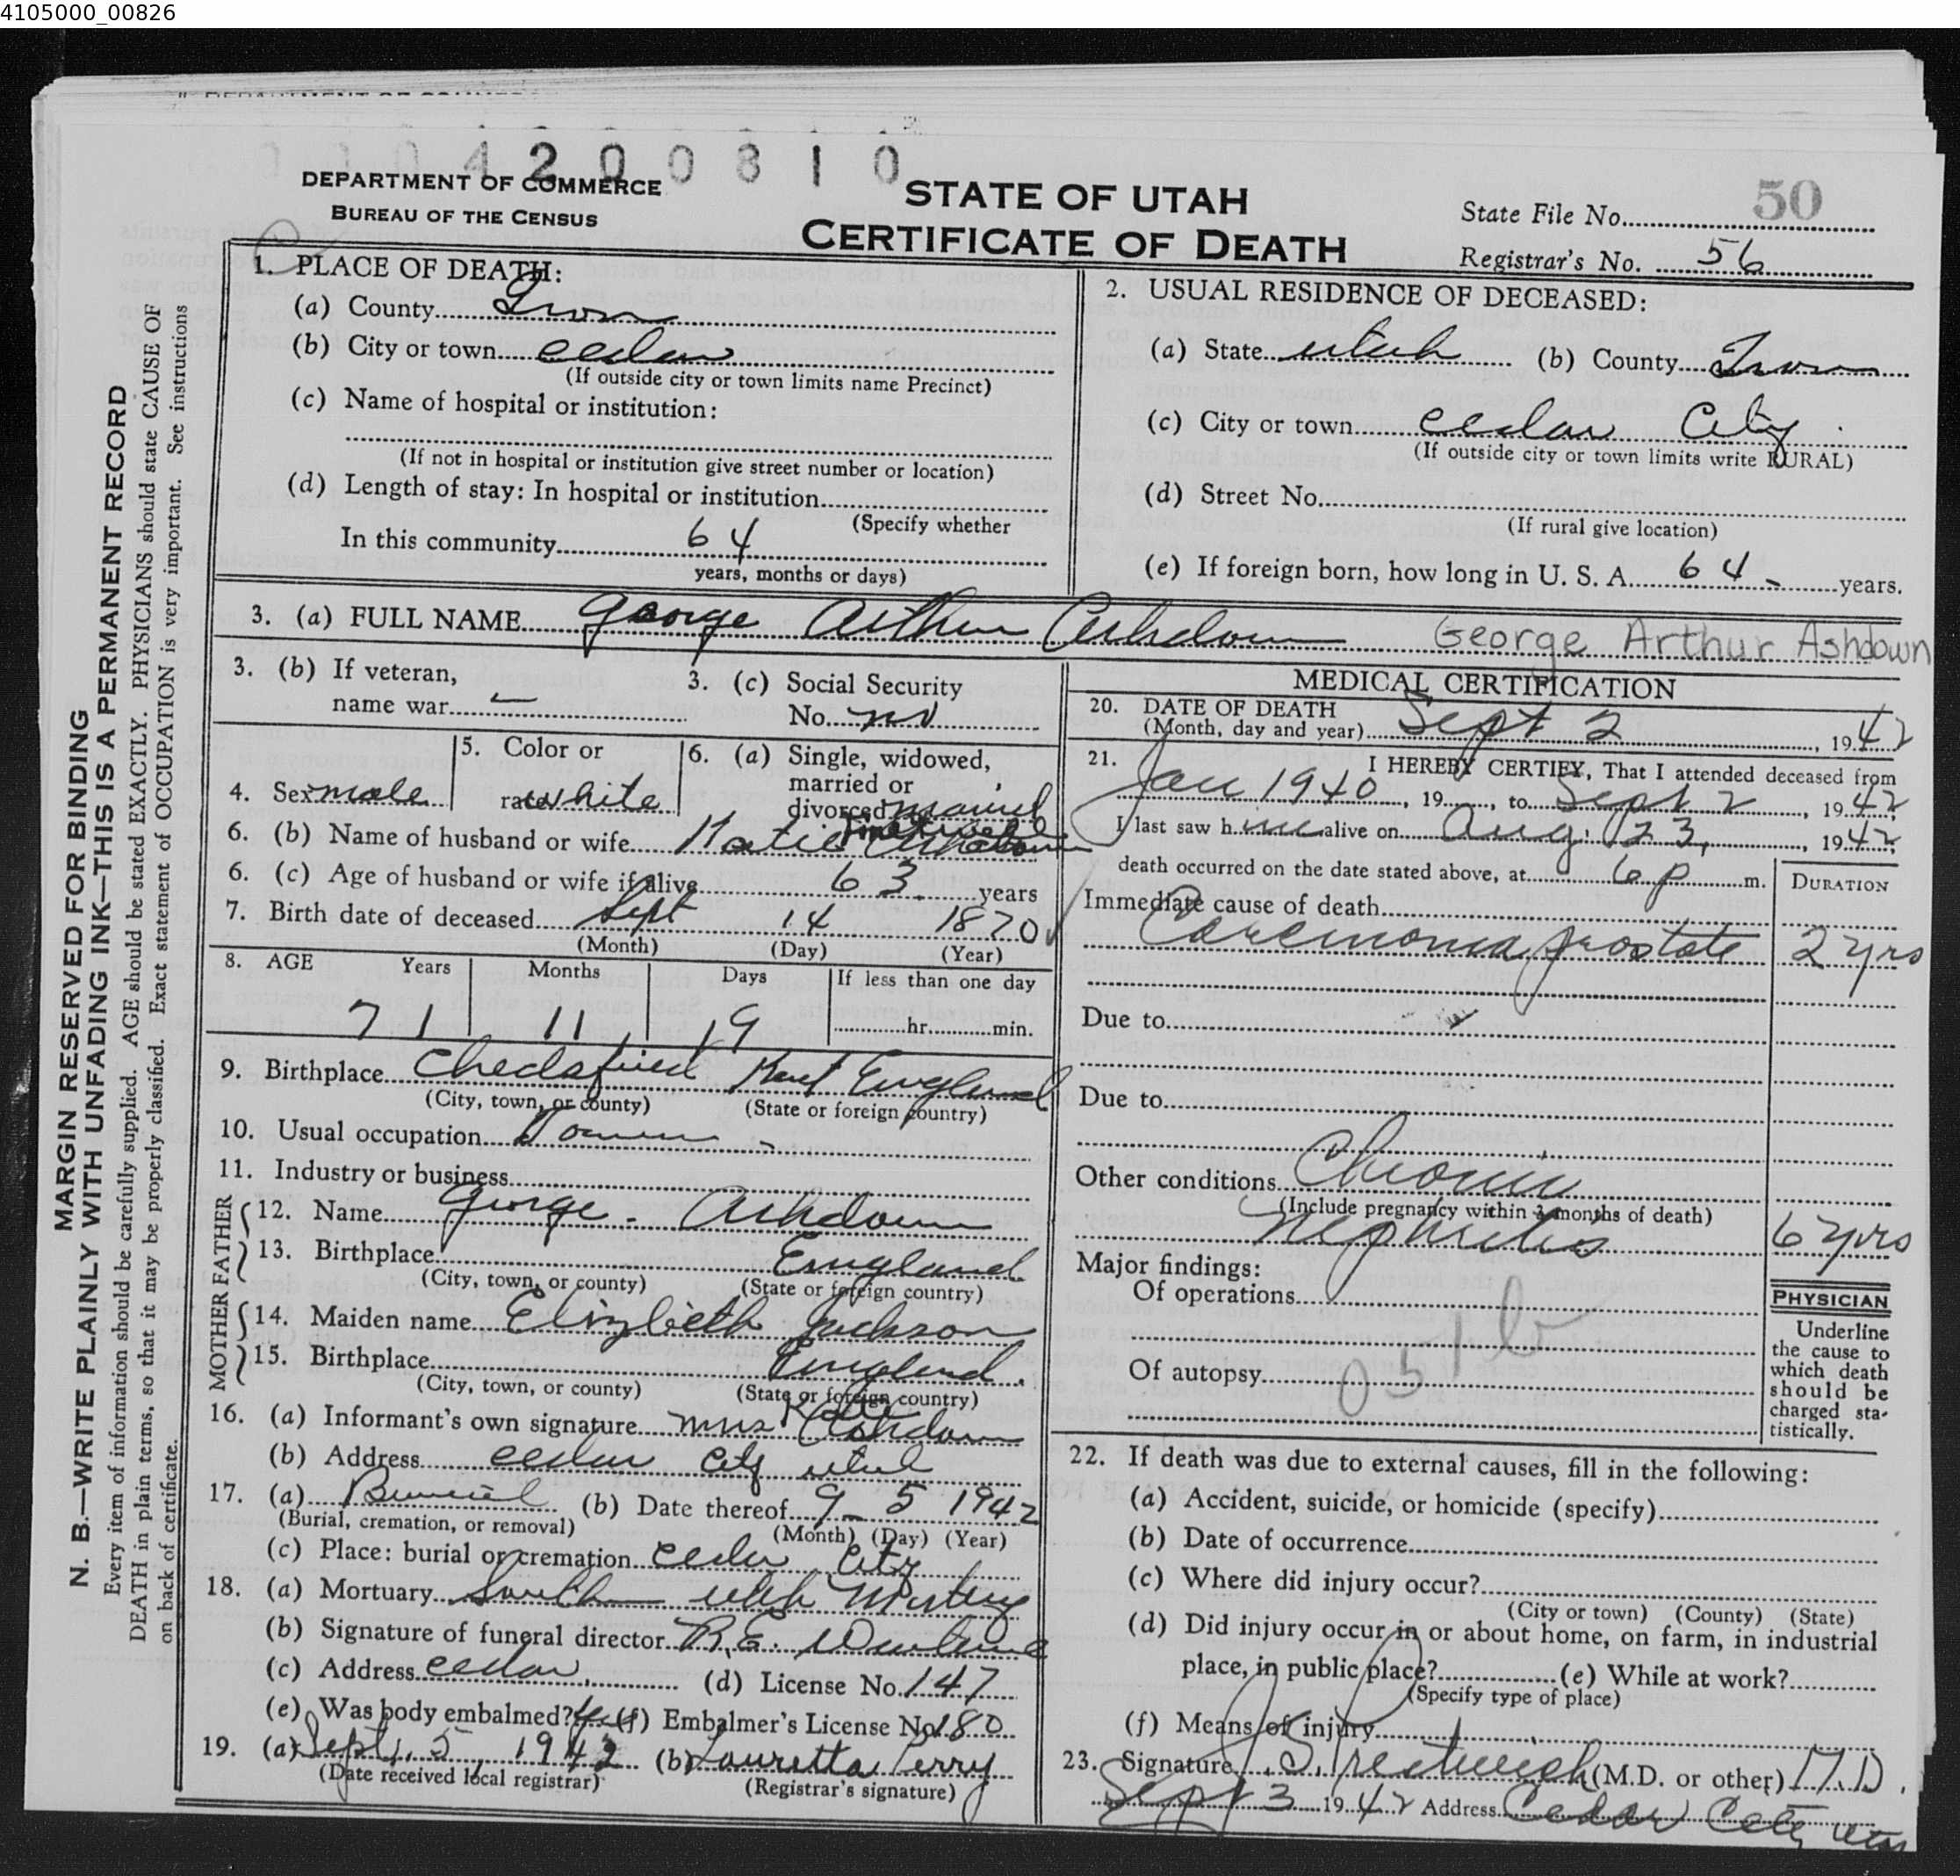 4105000_00826
4200310
DEPARTMENT OF COMMERCE
BUREAU OF THE CENSUS
STATE OF UTAH
CERTIFICATE OF DEATH
State File No. 50
Registrar's No. 56
MARGIN RESERVED FOR BINDING
N. B.—WRITE PLAINLY WITH UNFADING INK—THIS IS A PERMANENT RECORD
Every item of information should be carefully supplied. AGE should be stated EXACTLY. PHYSICIANS should state CAUSE OF
DEATH in plain terms, so that it may be properly classified. Exact statement of OCCUPATION is very important. See instructions
on back of certificate.
1. PLACE OF DEATH:
(a) County Iron
(b) City or town cedar
(If outside city or town limits name Precinct)
(c) Name of hospital or institution:
(If not in hospital or institution give street number or location)
(d) Length of stay: In hospital or institution
(Specify whether
In this community 64
years, months or days)
2. USUAL RESIDENCE OF DECEASED:
(a) State utah (b) County Iron
(c) City or town cedar City
(If outside city or town limits write RURAL)
(d) Street No.
(If rural give location)
(e) If foreign born, how long in U. S. A. 64 years.
3. (a) FULL NAME George Arthur Ashdown George Arthur Ashdown
3. (b) If veteran,
name war —
3. (c) Social Security
No. no
4. Sex male
5. Color or
race white
6. (a) Single, widowed,
married or
divorced married
6. (b) Name of husband or wife Katie Ashdown
6. (c) Age of husband or wife if alive 63 years
7. Birth date of deceased Sept 14 1870
(Month) (Day) (Year)
8. AGE Years Months Days If less than one day
71 11 19 hr. min.
9. Birthplace Kent England
(City, town, or county) (State or foreign country)
10. Usual occupation
11. Industry or business
FATHER
12. Name George Ashdown
13. Birthplace England
(City, town, or county) (State or foreign country)
MOTHER
14. Maiden name Elizbeth Jackson
15. Birthplace England.
(City, town, or county) (State or foreign country)
16. (a) Informant's own signature mrs Katie Ashdown
(b) Address cedar city utah
17. (a) Burriel (b) Date thereof 9 – 5 1942
(Burial, cremation, or removal) (Month) (Day) (Year)
(c) Place: burial or cremation cedar city
18. (a) Mortuary South utah
(b) Signature of funeral director R. E.
(c) Address cedar (d) License No. 147
(e) Was body embalmed? yes (f) Embalmer's License No. 180
19. (a) Sept. 5, 1942 (b) Lauretta Perry
(Date received local registrar) (Registrar's signature)
MEDICAL CERTIFICATION
20. DATE OF DEATH
(Month, day and year) Sept 2, 1942
21. I HEREBY CERTIFY, That I attended deceased from
Jan 1940, 19, to Sept 2, 1942,
I last saw h im alive on Aug. 23, 1942
death occurred on the date stated above, at 6 p m.
DURATION
Immediate cause of death
Carcinoma, prostate 2 yrs
Due to
Due to
Other conditions Chronic
(Include pregnancy within 3 months of death)
Nephritis 6 yrs
Major findings:
Of operations
Of autopsy
051b
PHYSICIAN
Underline
the cause to
which death
should be
charged sta-
tistically.
22. If death was due to external causes, fill in the following:
(a) Accident, suicide, or homicide (specify)
(b) Date of occurrence
(c) Where did injury occur?
(City or town) (County) (State)
(d) Did injury occur in or about home, on farm, in industrial
place, in public place? (e) While at work?
(Specify type of place)
(f) Means of injury
23. Signature (M.D. or other) M.D.
Sept 3 1942 Address Cedar City Utah